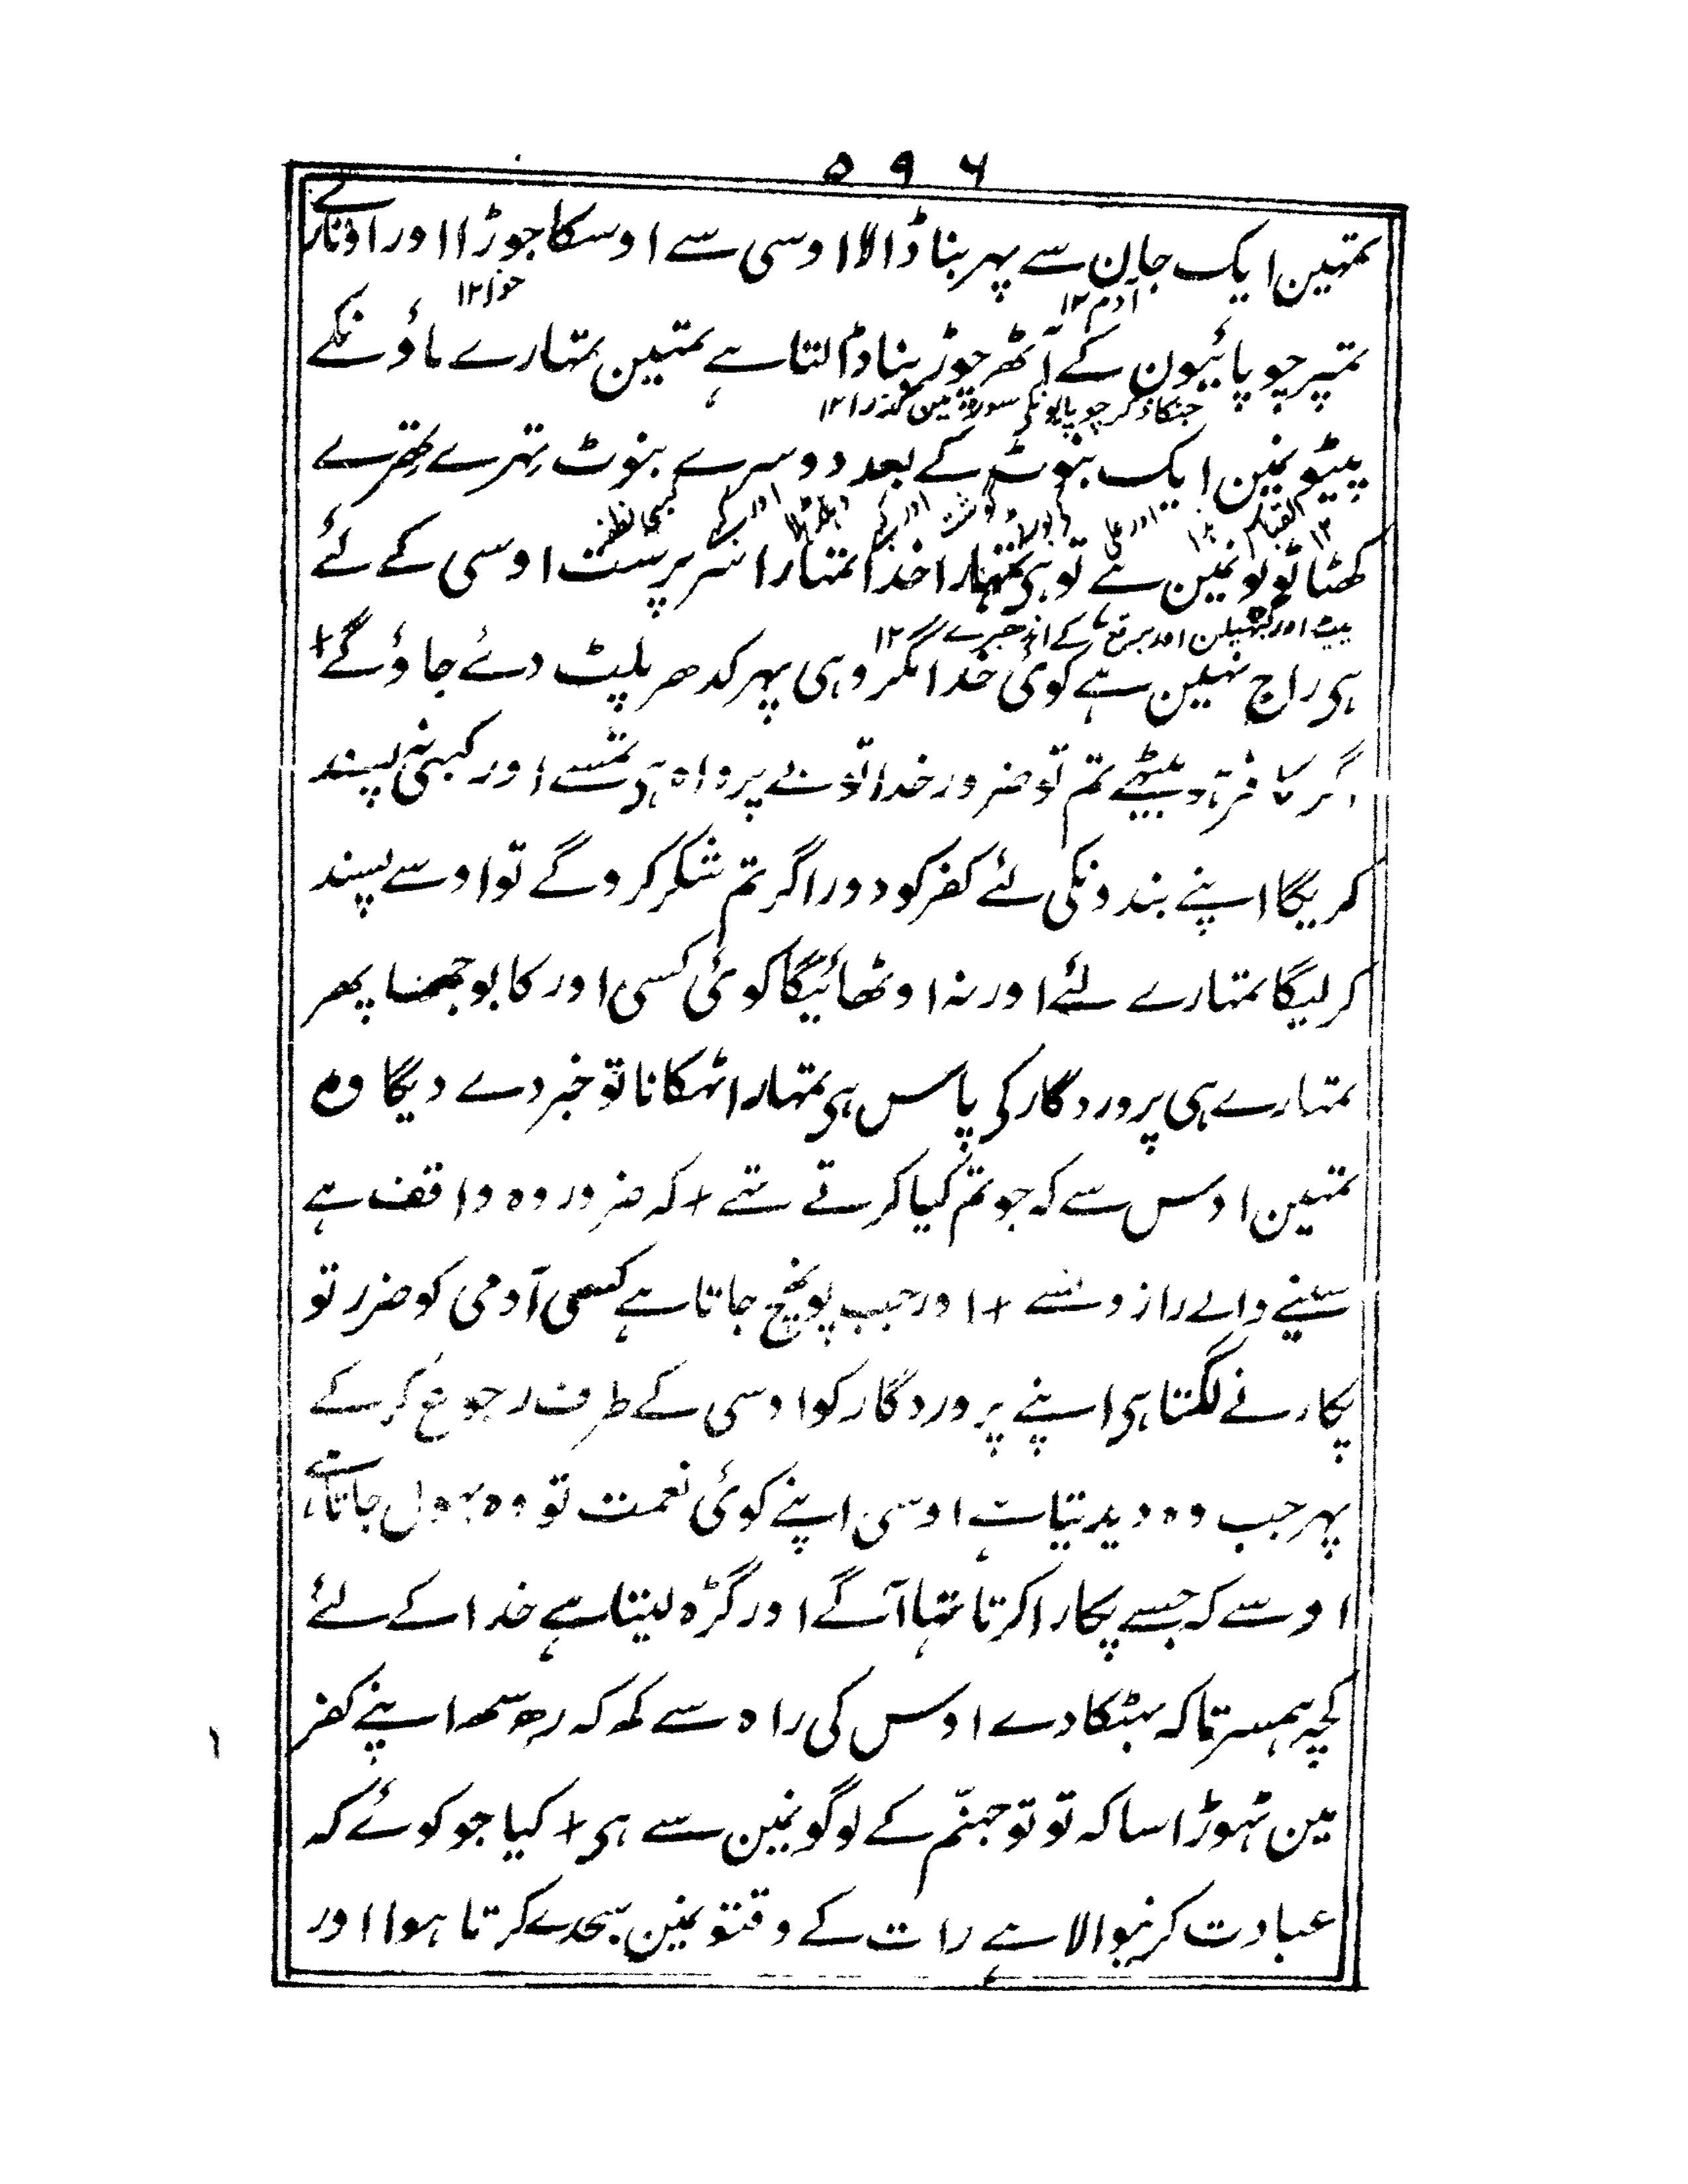 ۵۹۶
تمہین ایک جان سے پہر بنا ڈالا اوسی سے اوسکا جوڑا اور اوتارے
آدم ۱۲ حوا ۱۲
تمپر چوپائیون کے آٹھ جوڑ بنا ڈالتا ہے تمہین تمہارے ماؤنکے
جنکا ذکر چوپایونکی سورۃ مین گذرا ۱۲
پیٹونمین ایک بنوٹ کے بعد دوسرے بنوٹ تہرے تہرے
گوشت اور
کھٹاٹوپونمین سے توہی تمہارا خدا تمہارا سرپرست اوسی کے لئے
پیٹ اور اور برقع کے اندھیرے ۱۲
ہی راج نہین ہے کوئی خدا مگر وہی پہر کدھر پلٹ دئے جاؤگے +
اگر کافر ہو بیٹھے تم تو ضرور خدا تو بے پرواہ ہی تمسے اور کبہی نہ پسند
کریگا اپنے بندونکی لئے کفر کو اور اگر تم شکر کروگے تو اوسے پسند
کرلیگا تمہارے لئے اور نہ اوٹھائیگا کوئی کسی اور کا بوجھنا پھر
تمہارے ہی پروردگار کی پاس ہی تمہارا ٹہکانا تو خبر دے دیگا وہ
تمہین اوس سے کہ جو تم کیا کرتے تہے + کہ ضرور وہ واقف ہے
سینے والے رازونسے + اور جب پونہچ جاتا ہے کسی آدمی کو ضرر تو
پکارنے لگتا ہی اپنے پروردگار کو اوسی کے طرف رجوع کرکے
پہر جب وہ دیدیتا ہے اوسی اپنے کوئی نعمت تو وہ بہول جاتا ہے
اوسے کہ جسے پکارا کرتا تہا آگے اور گڑہ لیتا ہے خدا کے لئے
کچہ ہمسر تاکہ بہٹکا دے اوس کی راہ سے کہ کہ رہ سہ اپنے کفر
مین تہوڑا سا کہ تو تو جہنّم کے لوگونمین سے ہی + کیا جو کوئے کہ
عبادت کرنیوالا ہے رات کے وقتونمین سجدے کرتا ہوا اور
۱